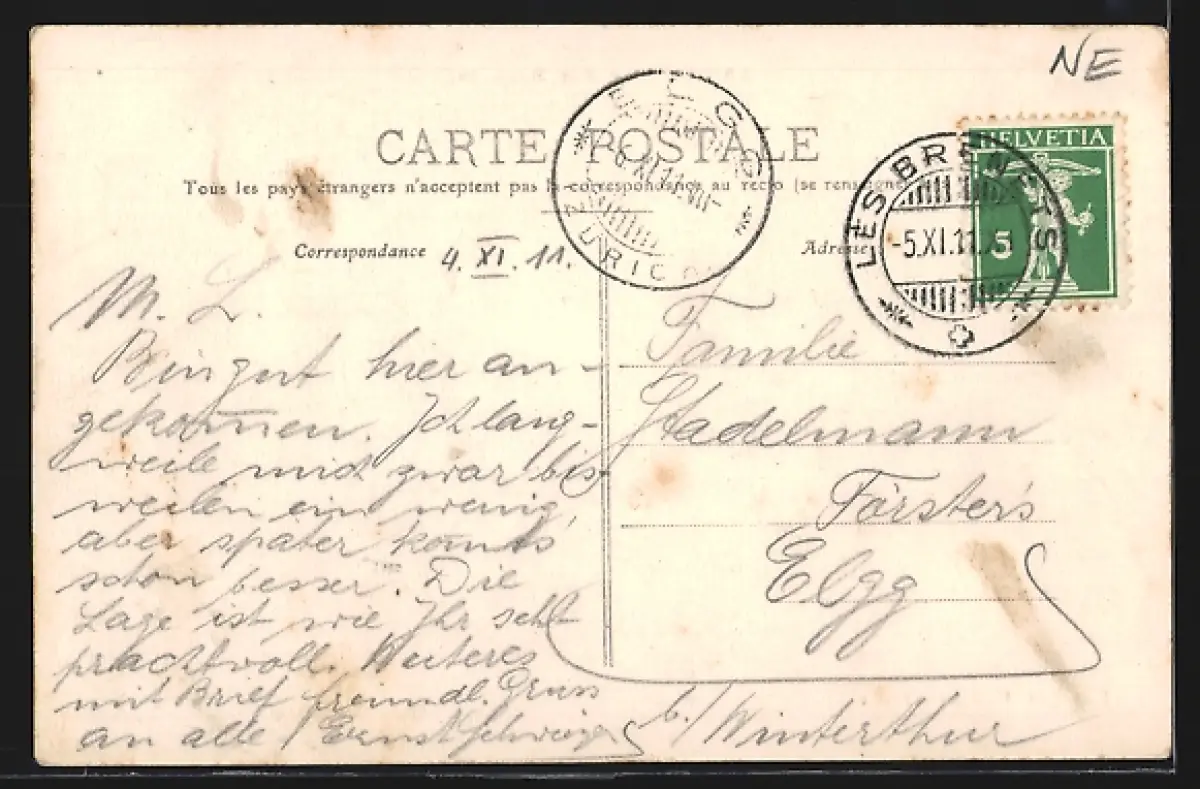 NE
CARTE POSTALE
Tous les pays étrangers n'acceptent pas la correspondance au recto (se renseigner
ELGG
6.XI.11.VII-
ZÜRICH
HELVETIA
5
LES BRENETS
-5.XI.11.X
Correspondance
4. XI. 11.
Adresse
M. L.
Bin gut hier an-
gekommen. Ich lang-
weile mich zwar bis-
weilen ein wenig,
aber später kommts
schon besser. Die
Lage ist wie Ihr seht
prachtvoll. Weiteres
mit Brief freundl. Gruss
an alle / Ernst
Familie
Stadelmann
Försters
Elgg
b./Winterthur